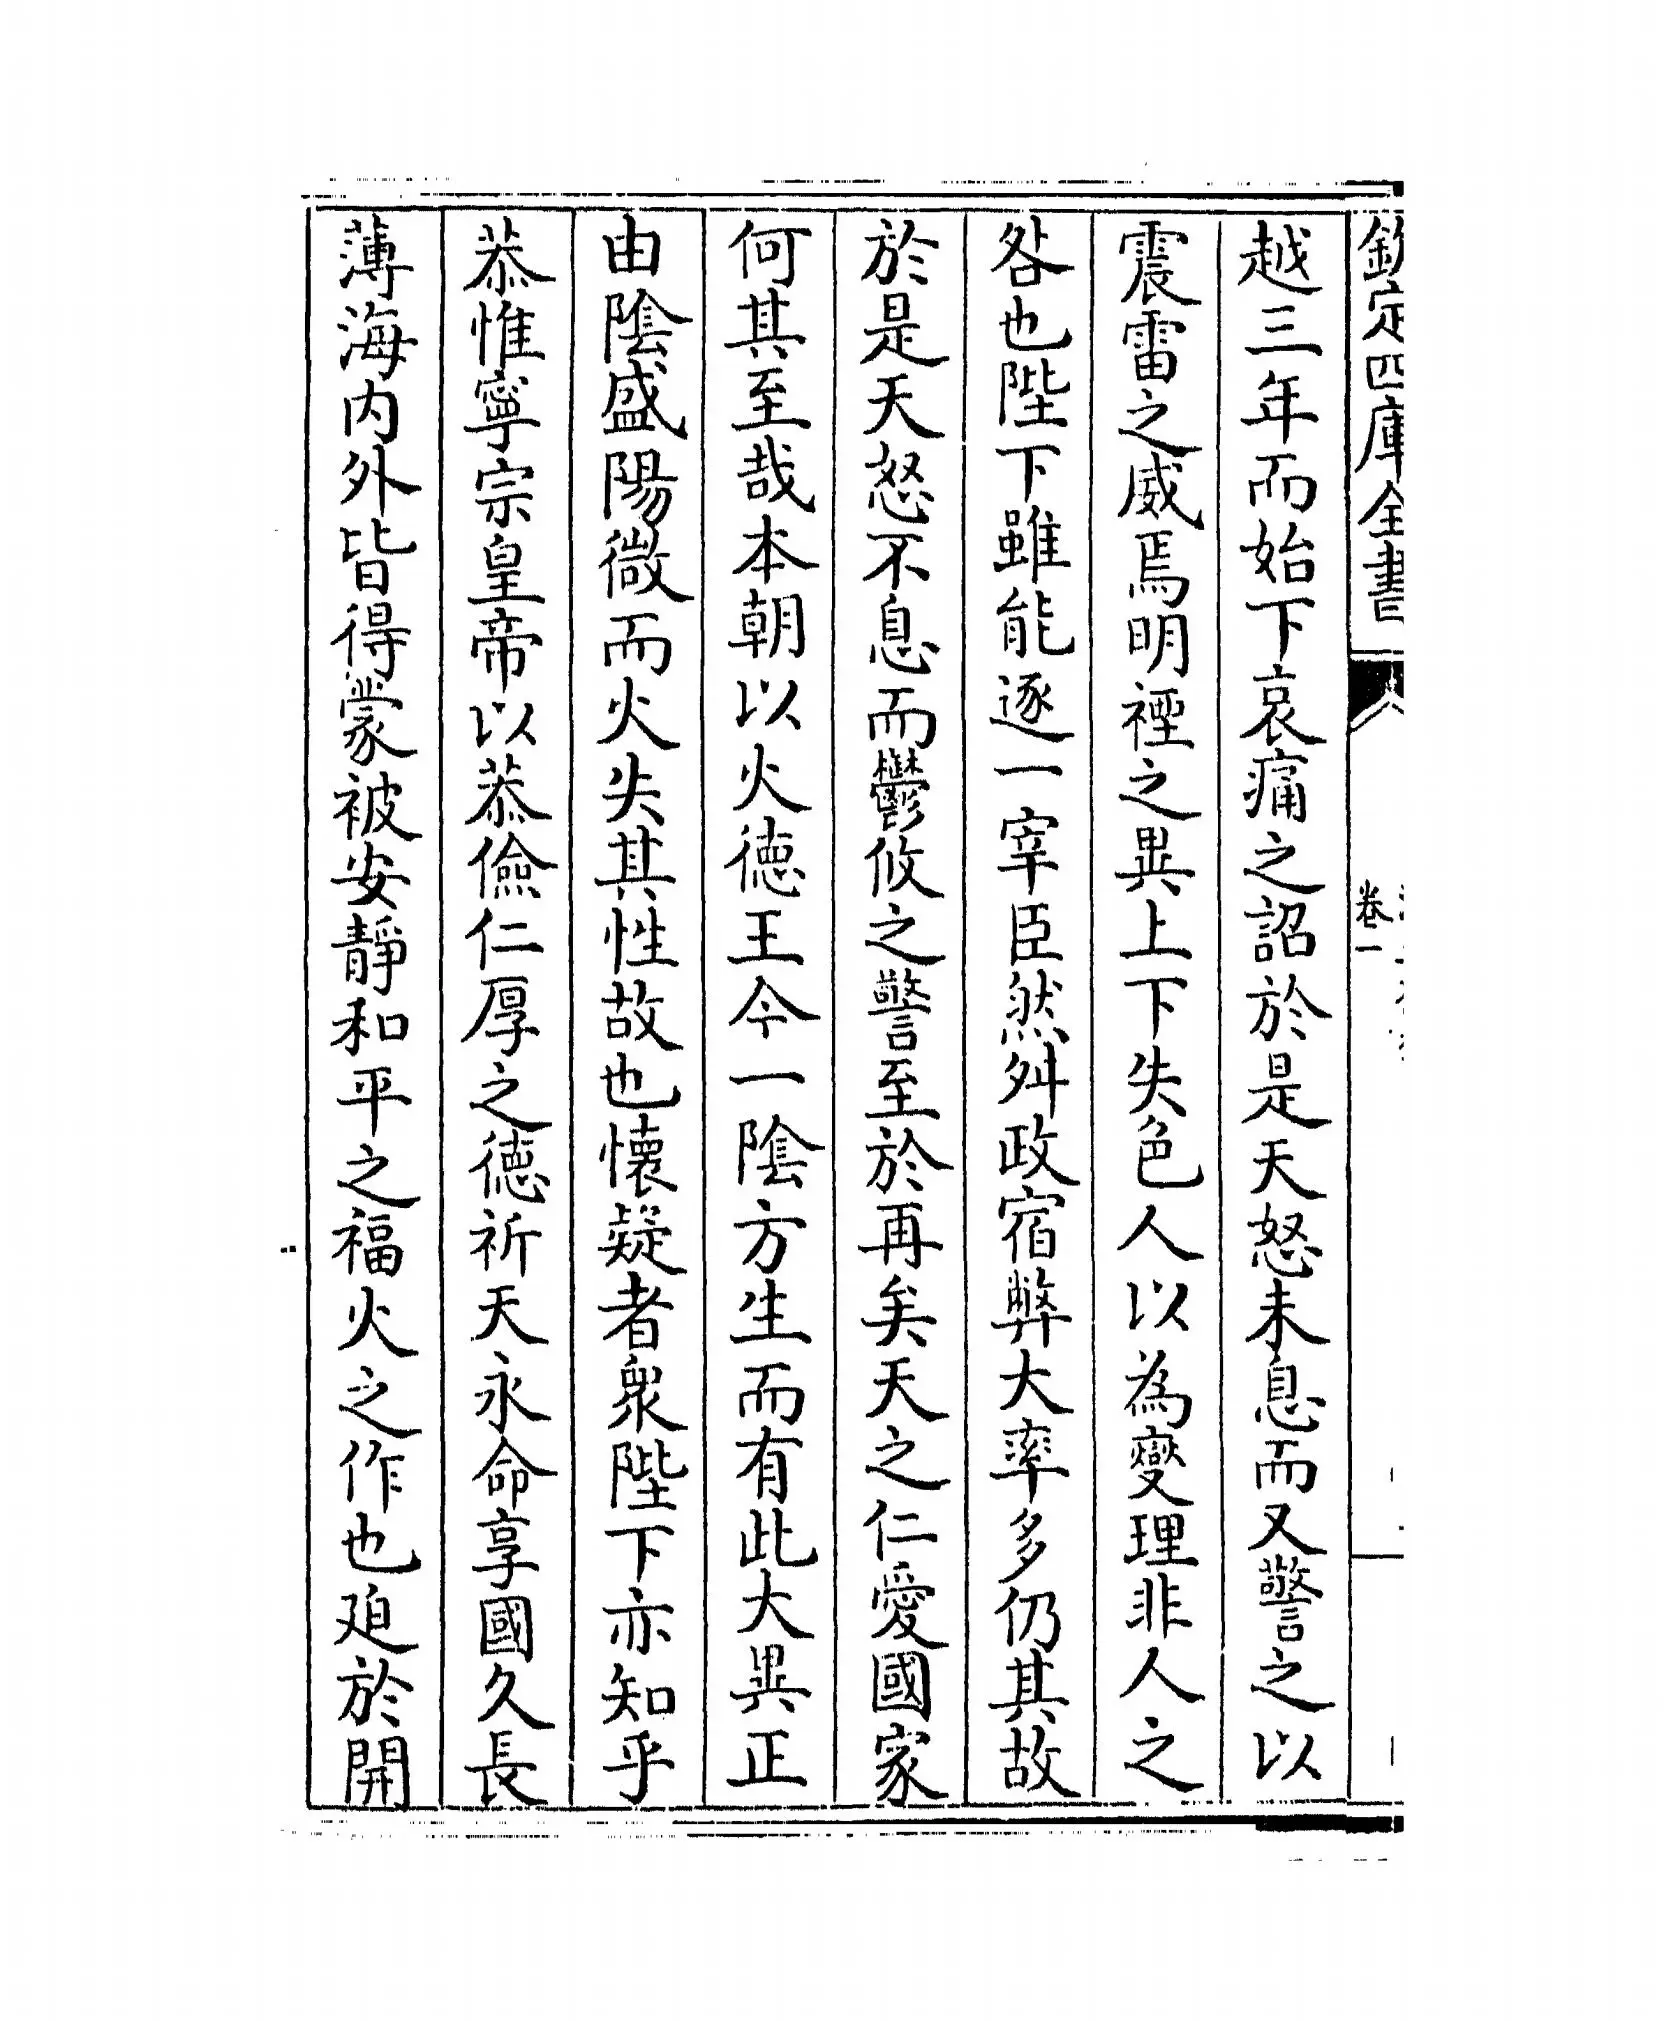 欽定四庫全書
卷一
越三年而始下哀痛之詔於是天怒未息而又警之以
震雷之威焉明禋之異上下失色人以為變理非人之
咎也陛下雖能逐一宰臣然舛政宿弊大率多仍其故
於是天怒不息而鬱攸之警至於再矣天之仁愛國家
何其至哉本朝以火德王今一陰方生而有此大異正
由陰盛陽微而火失其性故也懷疑者衆陛下亦知乎
恭惟寧宗皇帝以恭儉仁厚之德祈天永命享國久長
薄海內外皆得蒙被安靜和平之福火之作也廹於開